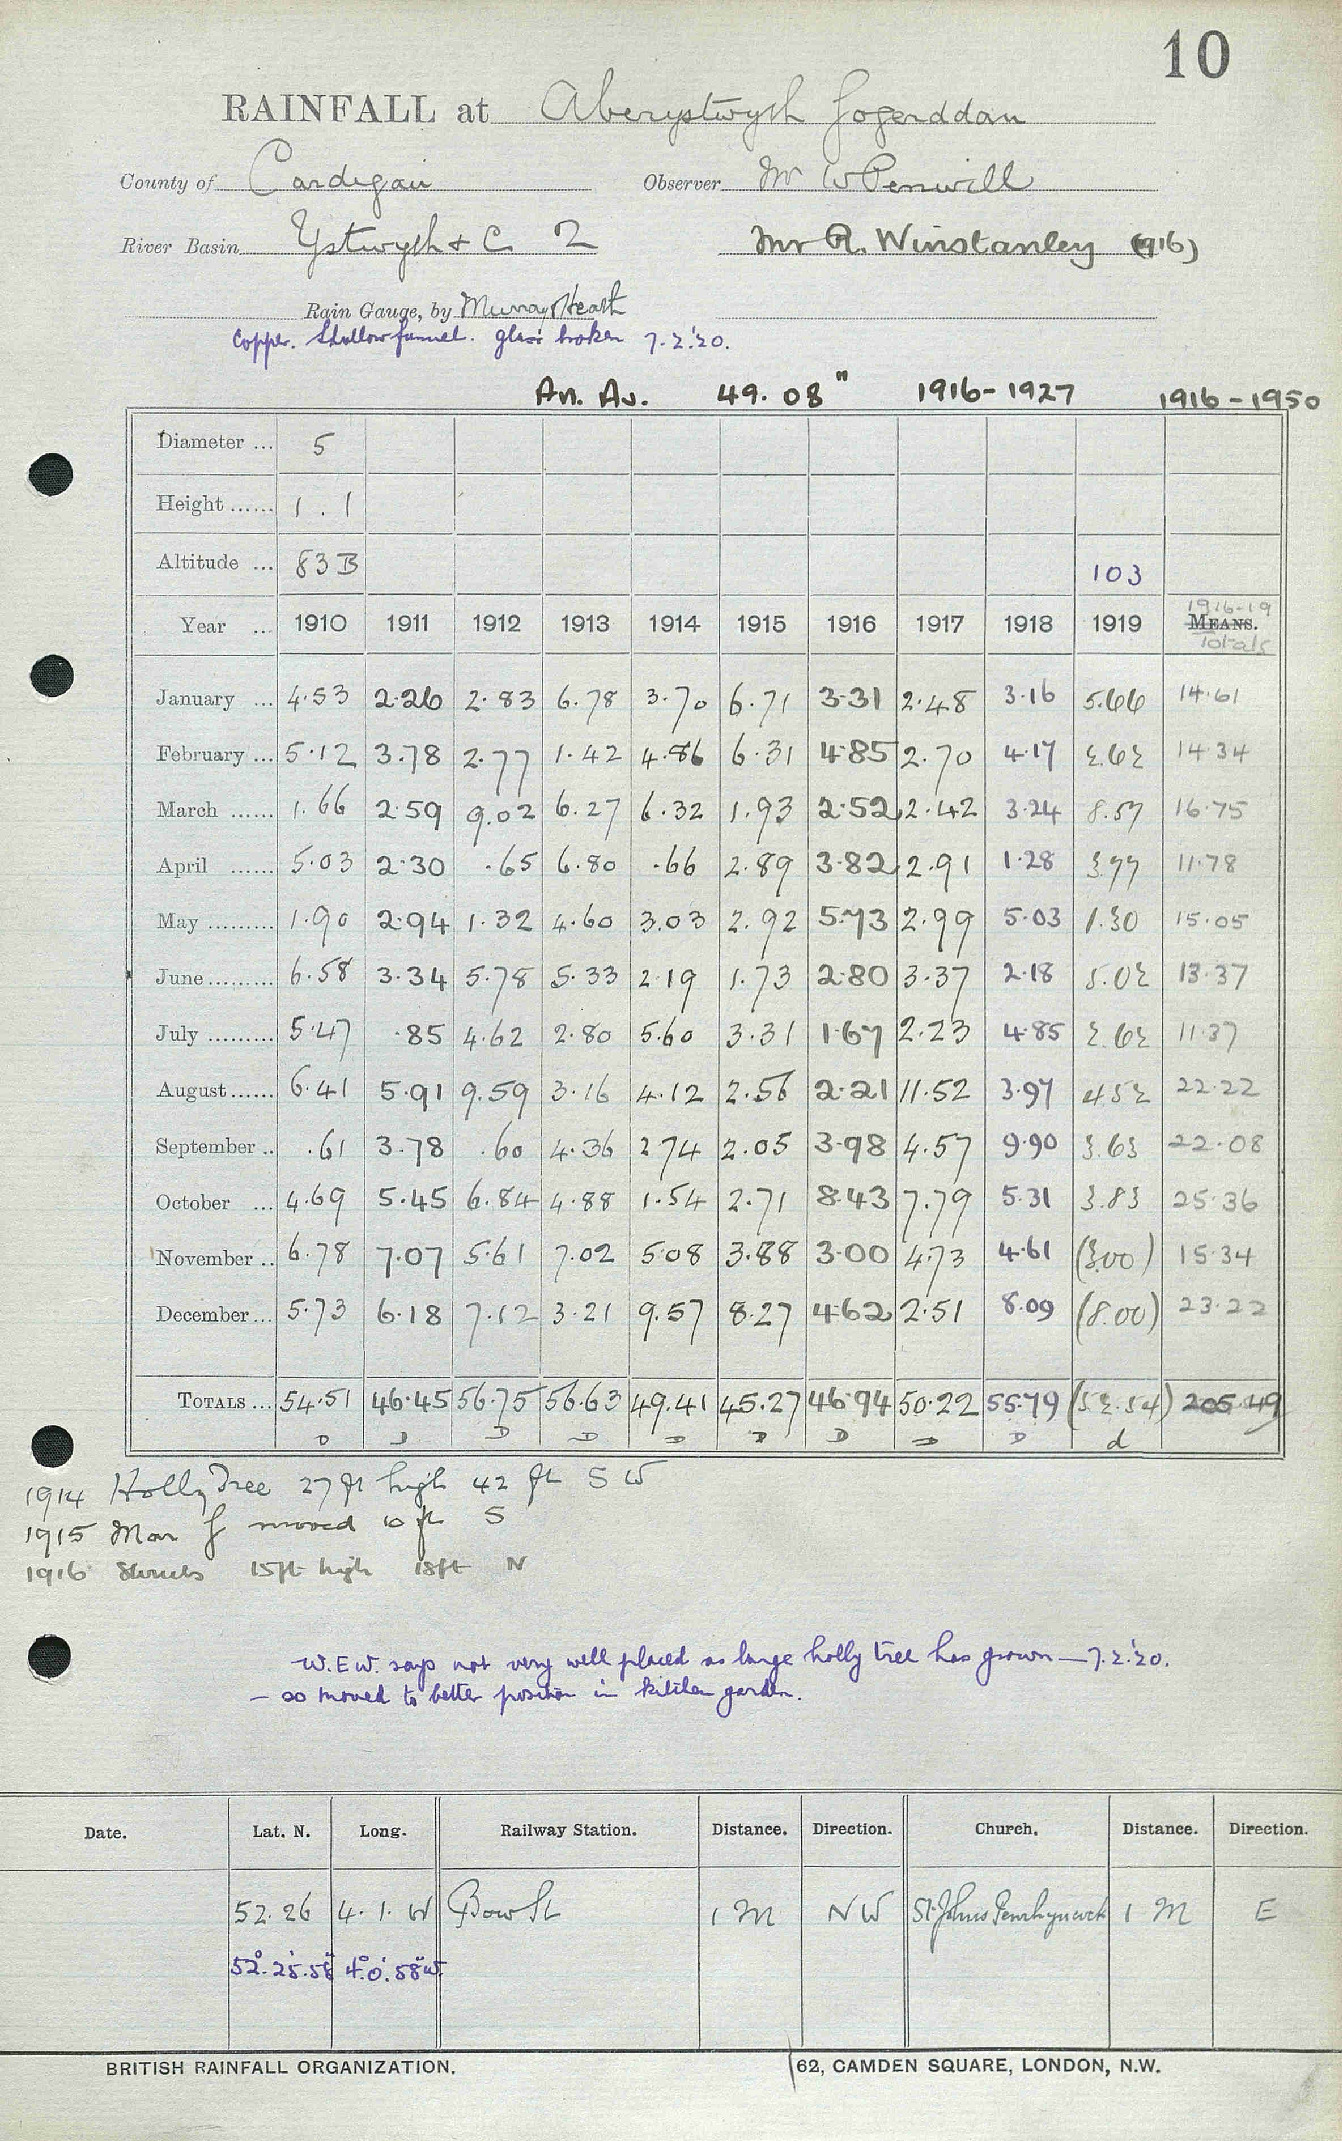 10
RAINFALL at Aberystwyth Gogerddan
County of Cardigan Observer Mr W Penwill
River Basin Ystwyth + C 2 Mr R. Winstanley (1916)
Rain Gauge, by Murray Heath
Copper. Shallow funnel. glass broken 7.2.'20.
An. Av. 49.08" 1916-1927 1916-1950
Diameter ... 5
Height ...... 1 . 1
Altitude ... 83 B 103
Year ... 1910 1911 1912 1913 1914 1915 1916 1917 1918 1919 1916-19 MEANS. Totals
January ... 4.53 2.26 2.83 6.78 3.70 6.71 3.31 2.48 3.16 5.66 14.61
February ... 5.12 3.78 2.77 1.42 4.86 6.31 4.85 2.70 4.17 2.62 14.34
March ...... 1.66 2.59 9.02 6.27 6.32 1.93 2.52 2.42 3.24 8.57 16.75
April ...... 5.03 2.30 .65 6.80 .66 2.89 3.82 2.91 1.28 3.77 11.78
May ......... 1.90 2.94 1.32 4.60 3.03 2.92 5.73 2.99 5.03 1.30 15.05
June ......... 6.58 3.34 5.78 5.33 2.19 1.73 2.80 3.37 2.18 5.02 13.37
July ......... 5.47 .85 4.62 2.80 5.60 3.31 1.67 2.23 4.85 2.62 11.37
August ...... 6.41 5.91 9.59 3.16 4.12 2.56 2.21 11.52 3.97 4.52 22.22
September .. .61 3.78 .60 4.36 2.74 2.05 3.98 4.57 9.90 3.63 22.08
October ... 4.69 5.45 6.84 4.88 1.54 2.71 8.43 7.79 5.31 3.83 25.36
November .. 6.78 7.07 5.61 7.02 5.08 3.88 3.00 4.73 4.61 (3.00) 15.34
December ... 5.73 6.18 7.12 3.21 9.57 8.27 4.62 2.51 8.09 (8.00) 23.22
TOTALS ... 54.51 46.45 56.75 56.63 49.41 45.27 46.94 50.22 55.79 (52.54) 205.49
D D D D D D D D D d
1914 Holly Tree 27 ft high 42 ft S W
1915 Mar G moved 10 ft S
1916 Shrubs 15ft high 18ft N
W.E.W. says not very well placed as large holly tree has grown — 7.2.'20.
— so moved to better position in kitchen garden.
Date. Lat. N. Long. Railway Station. Distance. Direction. Church. Distance. Direction.
52.26 4.1.W Bow St 1 M NW St Johns Penrhyncoch 1 M E
52°.25'.58" 4°.0'.58"W.
BRITISH RAINFALL ORGANIZATION. 62, CAMDEN SQUARE, LONDON, N.W.